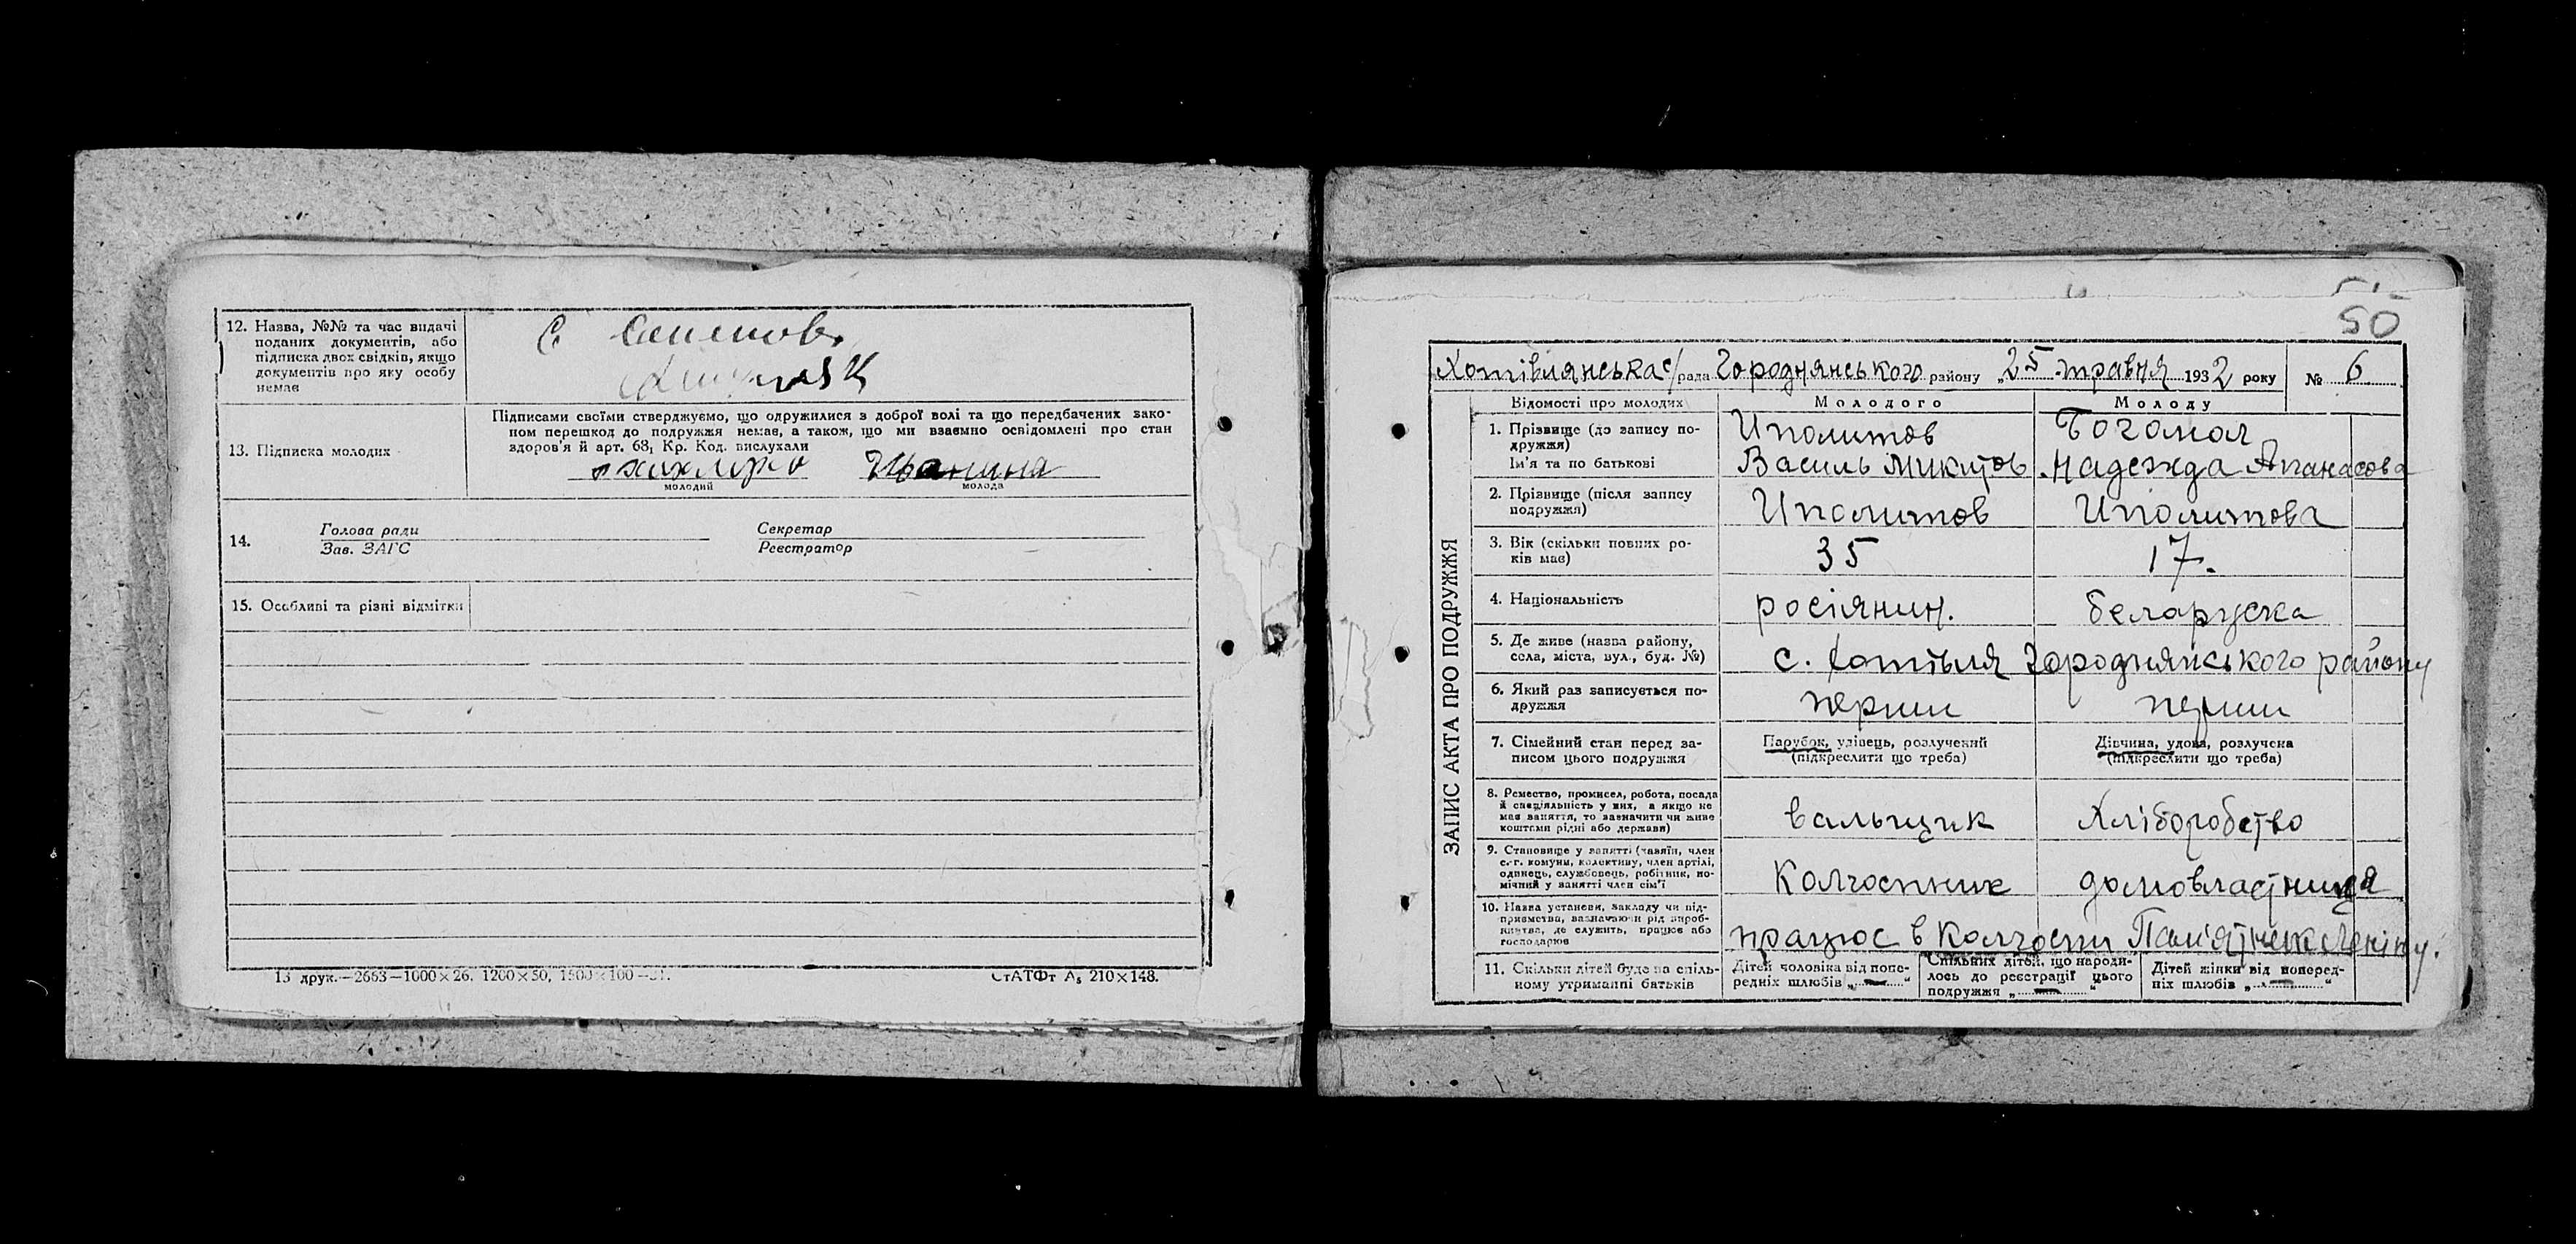 12. Назва, №№ та час видачі
поданих документів, або
підписка двох свідків, якщо
документів про яку особу
немає
13. Підписка молодих
Підписами своїми стверджуємо, що одружилися з доброї волі та що передбачених зако-
ном перешкод до подружжя немає, а також, що ми взаємно освідомлені про стан
здоров'я й арт. 68, Кр. Код. вислухали
молодий молода
14. Голова ради Секретар
Зав. ЗАГС Реєстратор
15. Особливі та різні відмітки
13 друк.—2663—1000×26. 1200×50, 1500×100
СтАТФт А₅ 210×148.
50
Хотівлянська с/рада Городнянського району „25 травня 1932 року № 6
ЗАПИС АКТА ПРО ПОДРУЖЖЯ
Відомості про молодих Молодого Молоду
1. Прізвище (до запису по-
дружжя)
Иполитов Богомол
Ім'я та по батькові Василь Микитов Надежда Апанасова
2. Прізвище (після запису
подружжя)
Иполитов Иполитова
3. Вік (скільки повних ро-
ків має)
35 17.
4. Національність росіянин. беларуска
5. Де живе (назва району,
села, міста, вул., буд. №)
с. Хотівля Городнянського району
6. Який раз записується по-
дружжя
перши перши
7. Сімейний стан перед за-
писом цього подружжя
Парубок, удівець, розлучений
(підкреслити що треба)
Дівчина, удова, розлучена
(підкреслити що треба)
8. Ремество, промисел, робота, посада
й спеціяльність у них, а якщо не
має заняття, то зазначити чи живе
коштами рідні або держави)
вальщик Хліборобство
9. Становище у занятті (хазяїн, член
с.-г. комуни, колективу, член артілі,
одинець, службовець, робітник, по-
мічний у занятті член сім'ї
Колгоспник домовластница
10. Назва установи, закладу чи під-
приємства, зазначаючи рід вироб-
ництва, де служить, працює або
господарює
працює в колгоспи Пам'ятнек Леніну.
11. Скільки дітей буде на спіль-
ному утриманні батьків
Дітей чоловіка від попе-
редніх шлюбів „—“
Спільних дітей, що народи-
лось до реєстрації цього
подружжя „—“
Дітей жінки від поперед-
ніх шлюбів „—“